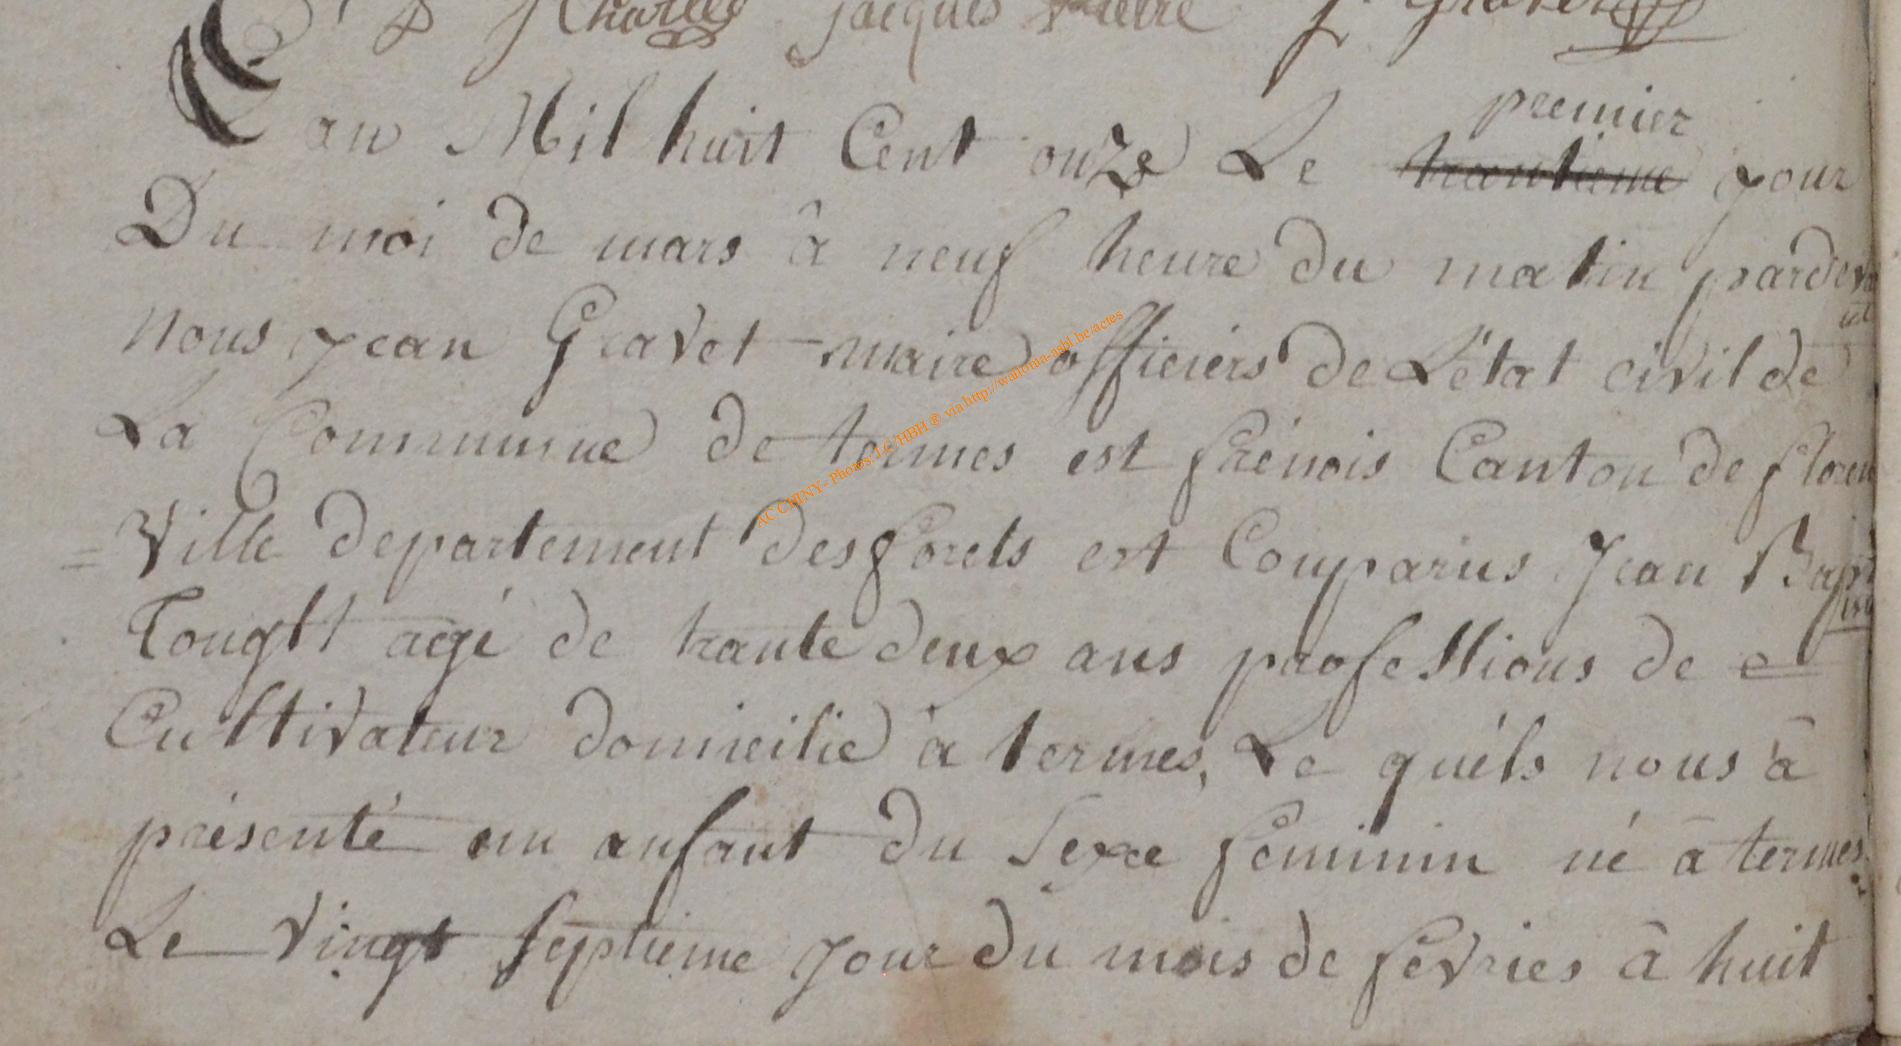 Charles Jacques pierre J. Gravet
L'an Mil huit Cent onze Le premier trantieme jour
Du moi de mars â neuf heure du matin pardevant
nous jean Gravet maire officiers de L'état civil de
La Commune de termes est frénois Canton de floren
=ville departement des forets est Comparus Jean Baptiste
agé de trante deux ans professions de
Cultivateur domicilié à termes, Le quéls nous â
présenté un anfant du Sexe féminin né â termes
Le vingt septieme jour du mois de févries â huit
AC CHINY - Photos: J.C. HBH ® via http://wallonia-asbl.be/actes